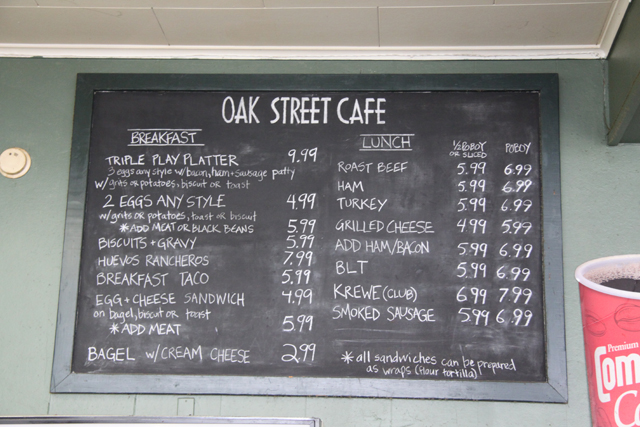 OAK STREET CAFE
BREAKFAST
TRIPLE PLAY PLATTER 9.99
3 eggs any style w/bacon, ham + sausage patty
w/grits or potatoes, biscuit or toast
2 EGGS ANY STYLE 4.99
w/grits or potatoes, toast or biscuit
*ADD MEAT OR BLACK BEANS 5.99
BISCUITS + GRAVY 5.99
HUEVOS RANCHEROS 7.99
BREAKFAST TACO 5.99
EGG + CHEESE SANDWICH 4.99
on bagel, biscuit or toast
*ADD MEAT 5.99
BAGEL w/CREAM CHEESE 2.99
LUNCH
½ POBOY POBOY
OR SLICED
ROAST BEEF 5.99 6.99
HAM 5.99 6.99
TURKEY 5.99 6.99
GRILLED CHEESE 4.99 5.99
ADD HAM/BACON 5.99 6.99
BLT 5.99 6.99
KREWE (CLUB) 6.99 7.99
SMOKED SAUSAGE 5.99 6.99
*all sandwiches can be prepared
as wraps (flour tortilla)
Premium
Com
C